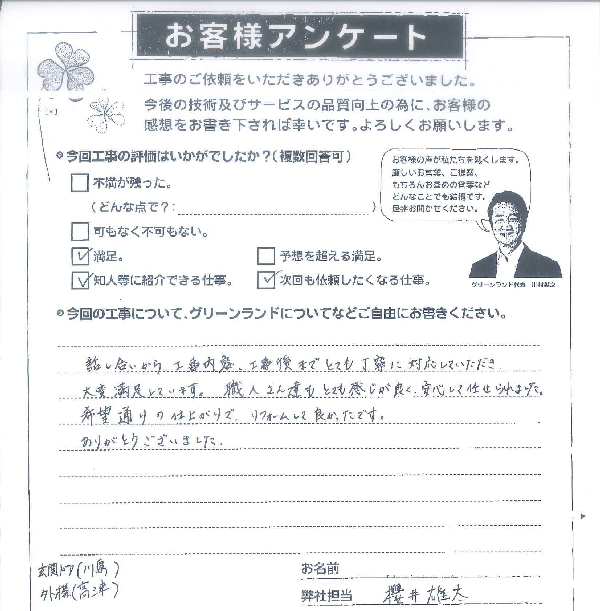 お客様アンケート
工事のご依頼をいただきありがとうございました。
今後の技術及びサービスの品質向上の為に、お客様の
感想をお書き下されば幸いです。よろしくお願いします。
今回工事の評価はいかがでしたか？(複数回答可)
不満が残った。
(どんな点で？: )
可もなく不可もない。
満足。
予想を超える満足。
知人等に紹介できる仕事。
次回も依頼したくなる仕事。
お客様の声が私たちを動かします。
厳しいお言葉、ご提案、
もちろんお褒めの言葉など
どんなことでも結構です。
是非お聞かせください。
グリーンランド代表
今回の工事について、グリーンランドについてなどご自由にお書きください。
話し合いから、工事内容、工事後までとても丁寧に対応していただき
大変満足しています。職人さん達もとても感じが良く、安心して任せられました。
希望通りの仕上がりで、リフォームして良かったです。
ありがとうございました。
玄関ドア(川島)
外構(高津)
お名前
弊社担当 櫻井雄大